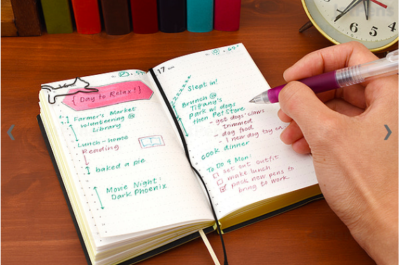 {Day to Relax!}
Farmer's Market
Volunteering @
Library
Lunch - home
Reading
baked a pie
Movie Night:
Dark Phoenix
17
Slept in!
Brunch @
Tiffany's
Park w/ dogs
Pet Store
- got dogs' nails
trimmed
- dog food
- 1 new dog toy
Cook dinner
To Do 4 Mon:
set out outfit
make lunch
pack new pens to
bring to work